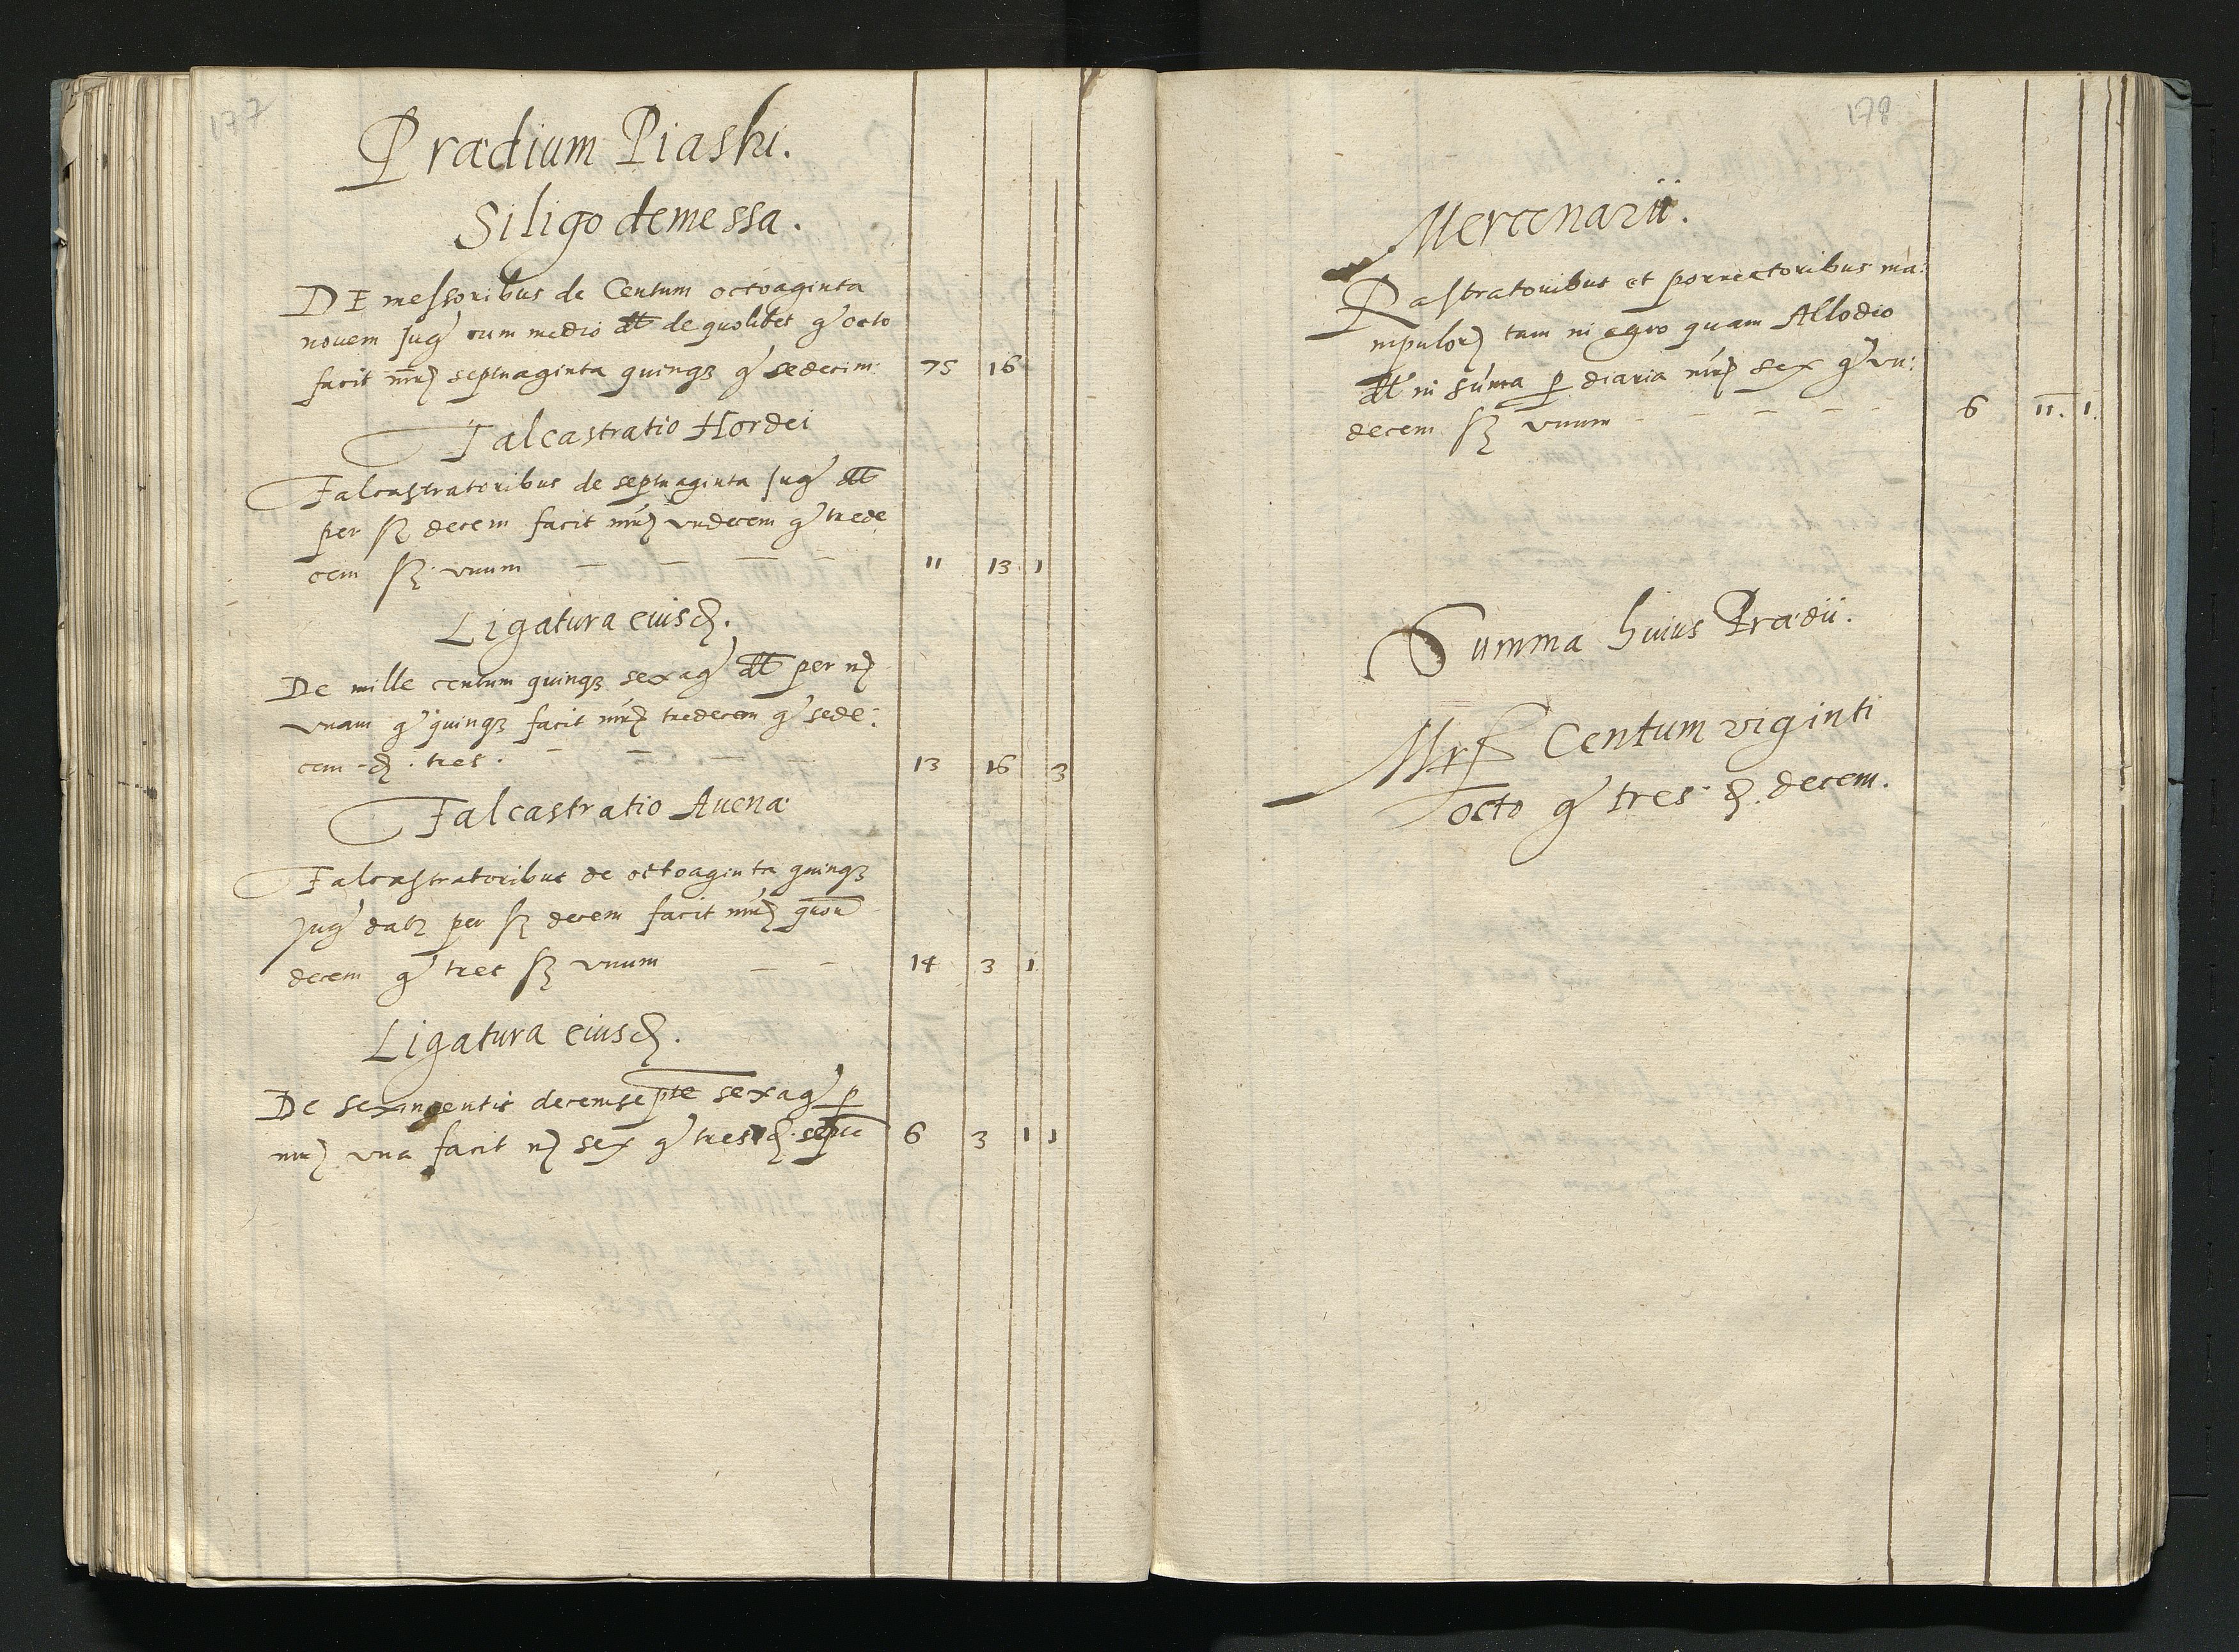 177
Prædium Piaski.
Siligo demessa.
DE messoribus de Centum octoaginta
nouem Jug cum medio dt de quolibet g octo
facit mrc septuaginta quinqz g sedecim 75 16
Falcastratio Hordei
Falcastratoribus de septuaginta Jug dt
per sz decem facit mrc vndecem g trede
cem sz vnum 11 13 1
Ligatura eiusd.
De mille centum quinqz sexag dt per n
vnam g quinqz facit mrc tredecem g sede:
cem d tres. 13 16 3
Falcastratio Auenæ
Falcastratoribus de octoaginta quinqz
Jug datz per sz decem facit mrc quatu
decem g tres sz vnum 14 3 1
Ligatura eiusd.
De sexingentis decemsepte sexag p
mrc vna facit n sex g tres d. septe 6 3 1 1
178
Mercenarii.
Rastratoribus et porrectoribus ma:
nipulor tam in agro quam Allodio
dt in suma p diaria mrc sex g vn:
decem sz vnum 6 11. 1.
Summa huius Prædii.
Mrc Centum viginti
octo g tres d. decem.